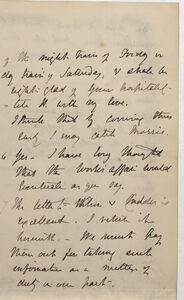 of the night train of Friday or
day train of Saturday, & shall be
right glad of your hospitality
with my love.
I think that by coming thus
early I may catch Morris.
6 Yes - I have long thought
that the works affair would
as you say.
7 The letter to & is
excellent. I return it
herewith. - We must pay
them out for taking such
information as a matter of
duty on our part.